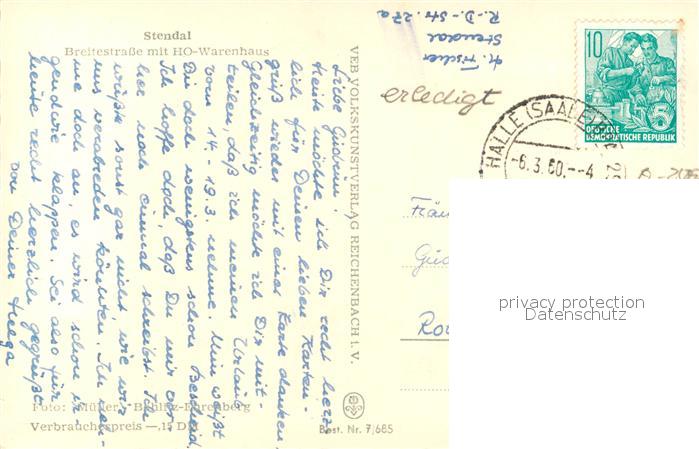 Stendal
Breitestraße mit HO-Warenhaus
Liebe Gudrun!
Heute möchte ich Dir recht herz-
lich für Deinen lieben Karten-
gruß wieder mit einer Karte danken.
Gleichzeitig möchte ich Dir mit-
teilen, daß ich meinen Urlaub
vom 14.-19.3. nehme. Nun weißt
Du doch wenigstens schon Bescheid.
Ich hoffe doch, daß Du mir vor-
her noch einmal schreibst. Ich
wüßte sonst gar nicht, wie wir
uns verabreden könnten. Ich neh-
me doch an, es wird schon ir-
gendwie klappen. Sei also für
heute recht herzlich gegrüßt
von Deiner Helga
Foto: Müller, Böhlitz-Ehrenberg
Verbraucherpreis -,15 DM
VEB VOLKSKUNSTVERLAG REICHENBACH i. V.
Best. Nr. 7/685
H. Fischer
Stendal
R.-D.-Str. 27a
erledigt
10
DEUTSCHE
DEMOKRATISCHE REPUBLIK
5
HALLE (SAALE)
-6.3.60.--4
Fräu
Gud
Ro
privacy protection
Datenschutz